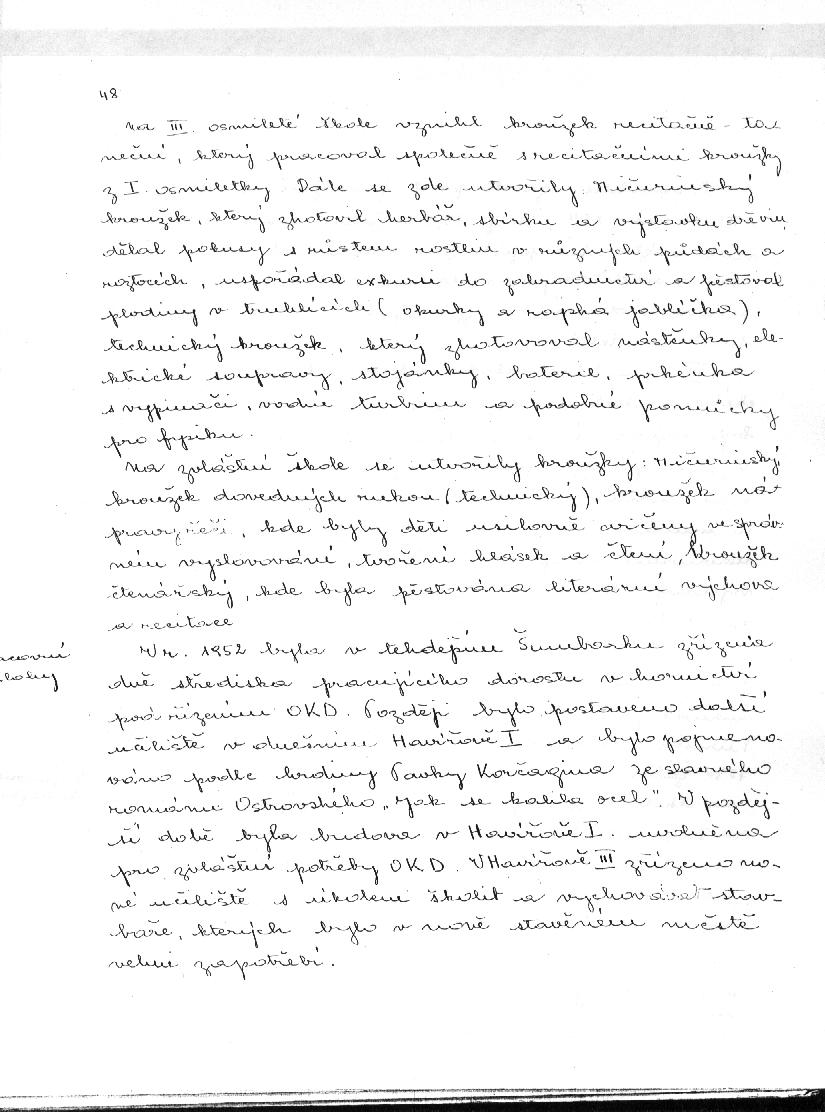 48
Na III. osmileté škole vznikl kroužek recitačně - ta-
neční, který pracoval společně s recitačními kroužky
z I. osmiletky. Dále se zde utvořily Mičurinský
kroužek, který zhotovil herbář, sbírku a výstavku dřevin,
dělal pokusy s růstem rostlin v různých půdách a
roztocích, uspořádal exkursi do zahradnictví a pěstoval
plodiny v truhlících ( okurky a rajská jablíčka),
technický kroužek, který zhotovoval nástěnky, ele-
ktrické soupravy, stojánky, baterie, prkénka
s vypinači, vodní turbinu a podobné pomůcky
pro fysiku.
Na zvláštní škole se utvořily kroužky: Mičurinský,
kroužek dovedných rukou (technický), kroužek ná-
pravy řeči, kde byly děti usilovně cvičeny ve správ-
ném vyslovování, tvoření hlásek a čtení, kroužek
čtenářský, kde byla pěstována literární výchova
a recitace
acovní
lohy
V r. 1952 byla v tehdejším Šumbarku zřízena
dvě střediska pracujícího dorostu v hornictví
pod řízením OKD. Později bylo postaveno další
učiliště v dnešním Havířově I a bylo pojmeno-
váno podle hrdiny Pavky Korčagina ze slavného
románu Ostrovského „Jak se kalila ocel". V pozděj-
ší době byla budova v Havířově I. uvolněna
pro zvláštní potřeby OKD. V Havířově III zřízeno no-
vé učiliště s úkolem školit a vychovávat stav-
baře, kterých bylo v nově stavěném městě
velmi zapotřebí.